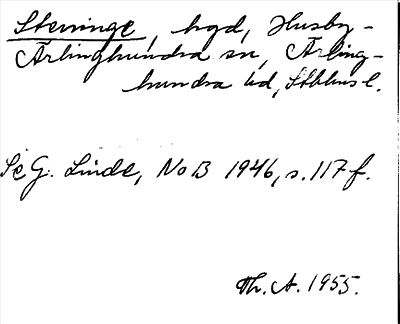 Steninge, hgd, Husby-
Ärlinghundra sn, Ärling-
hundra hd, Sthlms l.
Se G. Linde, NoB 1946, s. 117 f.
Th. A. 1955.